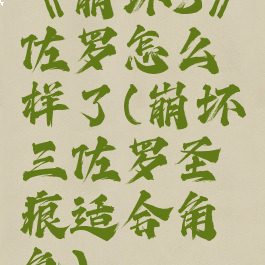 《崩坏3》
佐罗怎么
样了(崩坏
三佐罗圣
痕适合角
色)